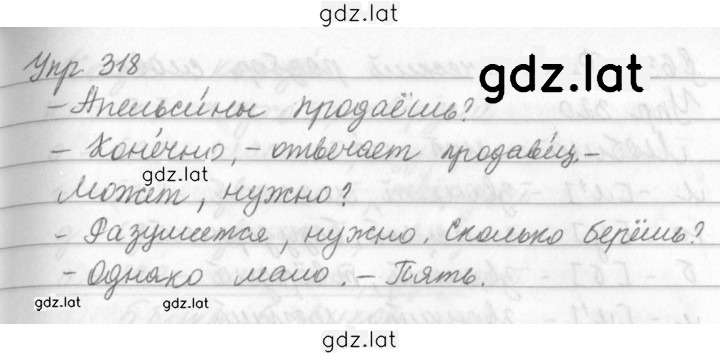 gdz.lat
Упр 318
gdz.lat
– Апельси́ны продаёшь?
– Коне́чно, – отвечает продаве́ц. –
gdz.lat
Может, нужно?
– Разумеется, нужно. Сколько берёшь?
– Однако мало. – Пять.
gdz.lat gdz.lat
gdz.lat